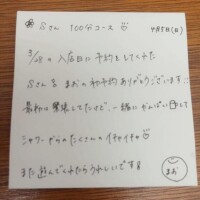 Sさん 100分コース
4月5日(日)
3/28の入店日に予約をしてくれた
Sさん まおの初予約ありがとうございます
最初は緊張してたけど、一緒にがんばい して
シャワーからのたくさんのイチャイチャ
また遊んでくれたらうれしいです
まお